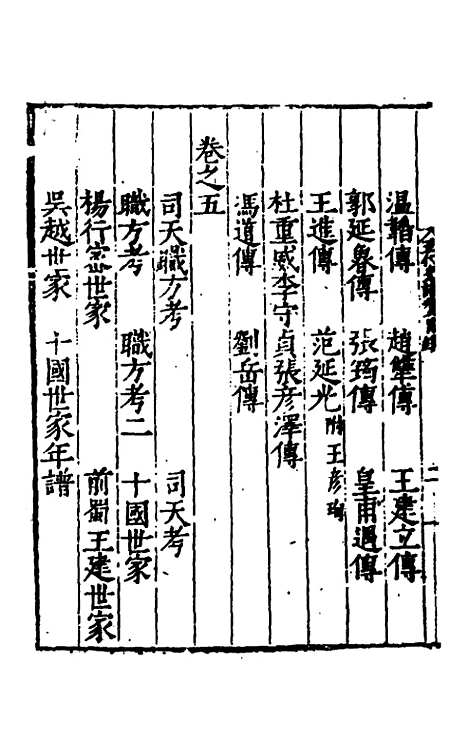 温韜傳 趙犨傳 王建立傳
郭延魯傳 張筠傳 皇甫遇傳
王進傳 范延光 附王彦珣
杜重威李守貞張彦澤傳
馮道傳 劉岳傳
卷之五
司天職方考 司天考
職方考 職方考二 十國世家
楊行密世家 前蜀王建世家
吳越世家 十國世家年譜